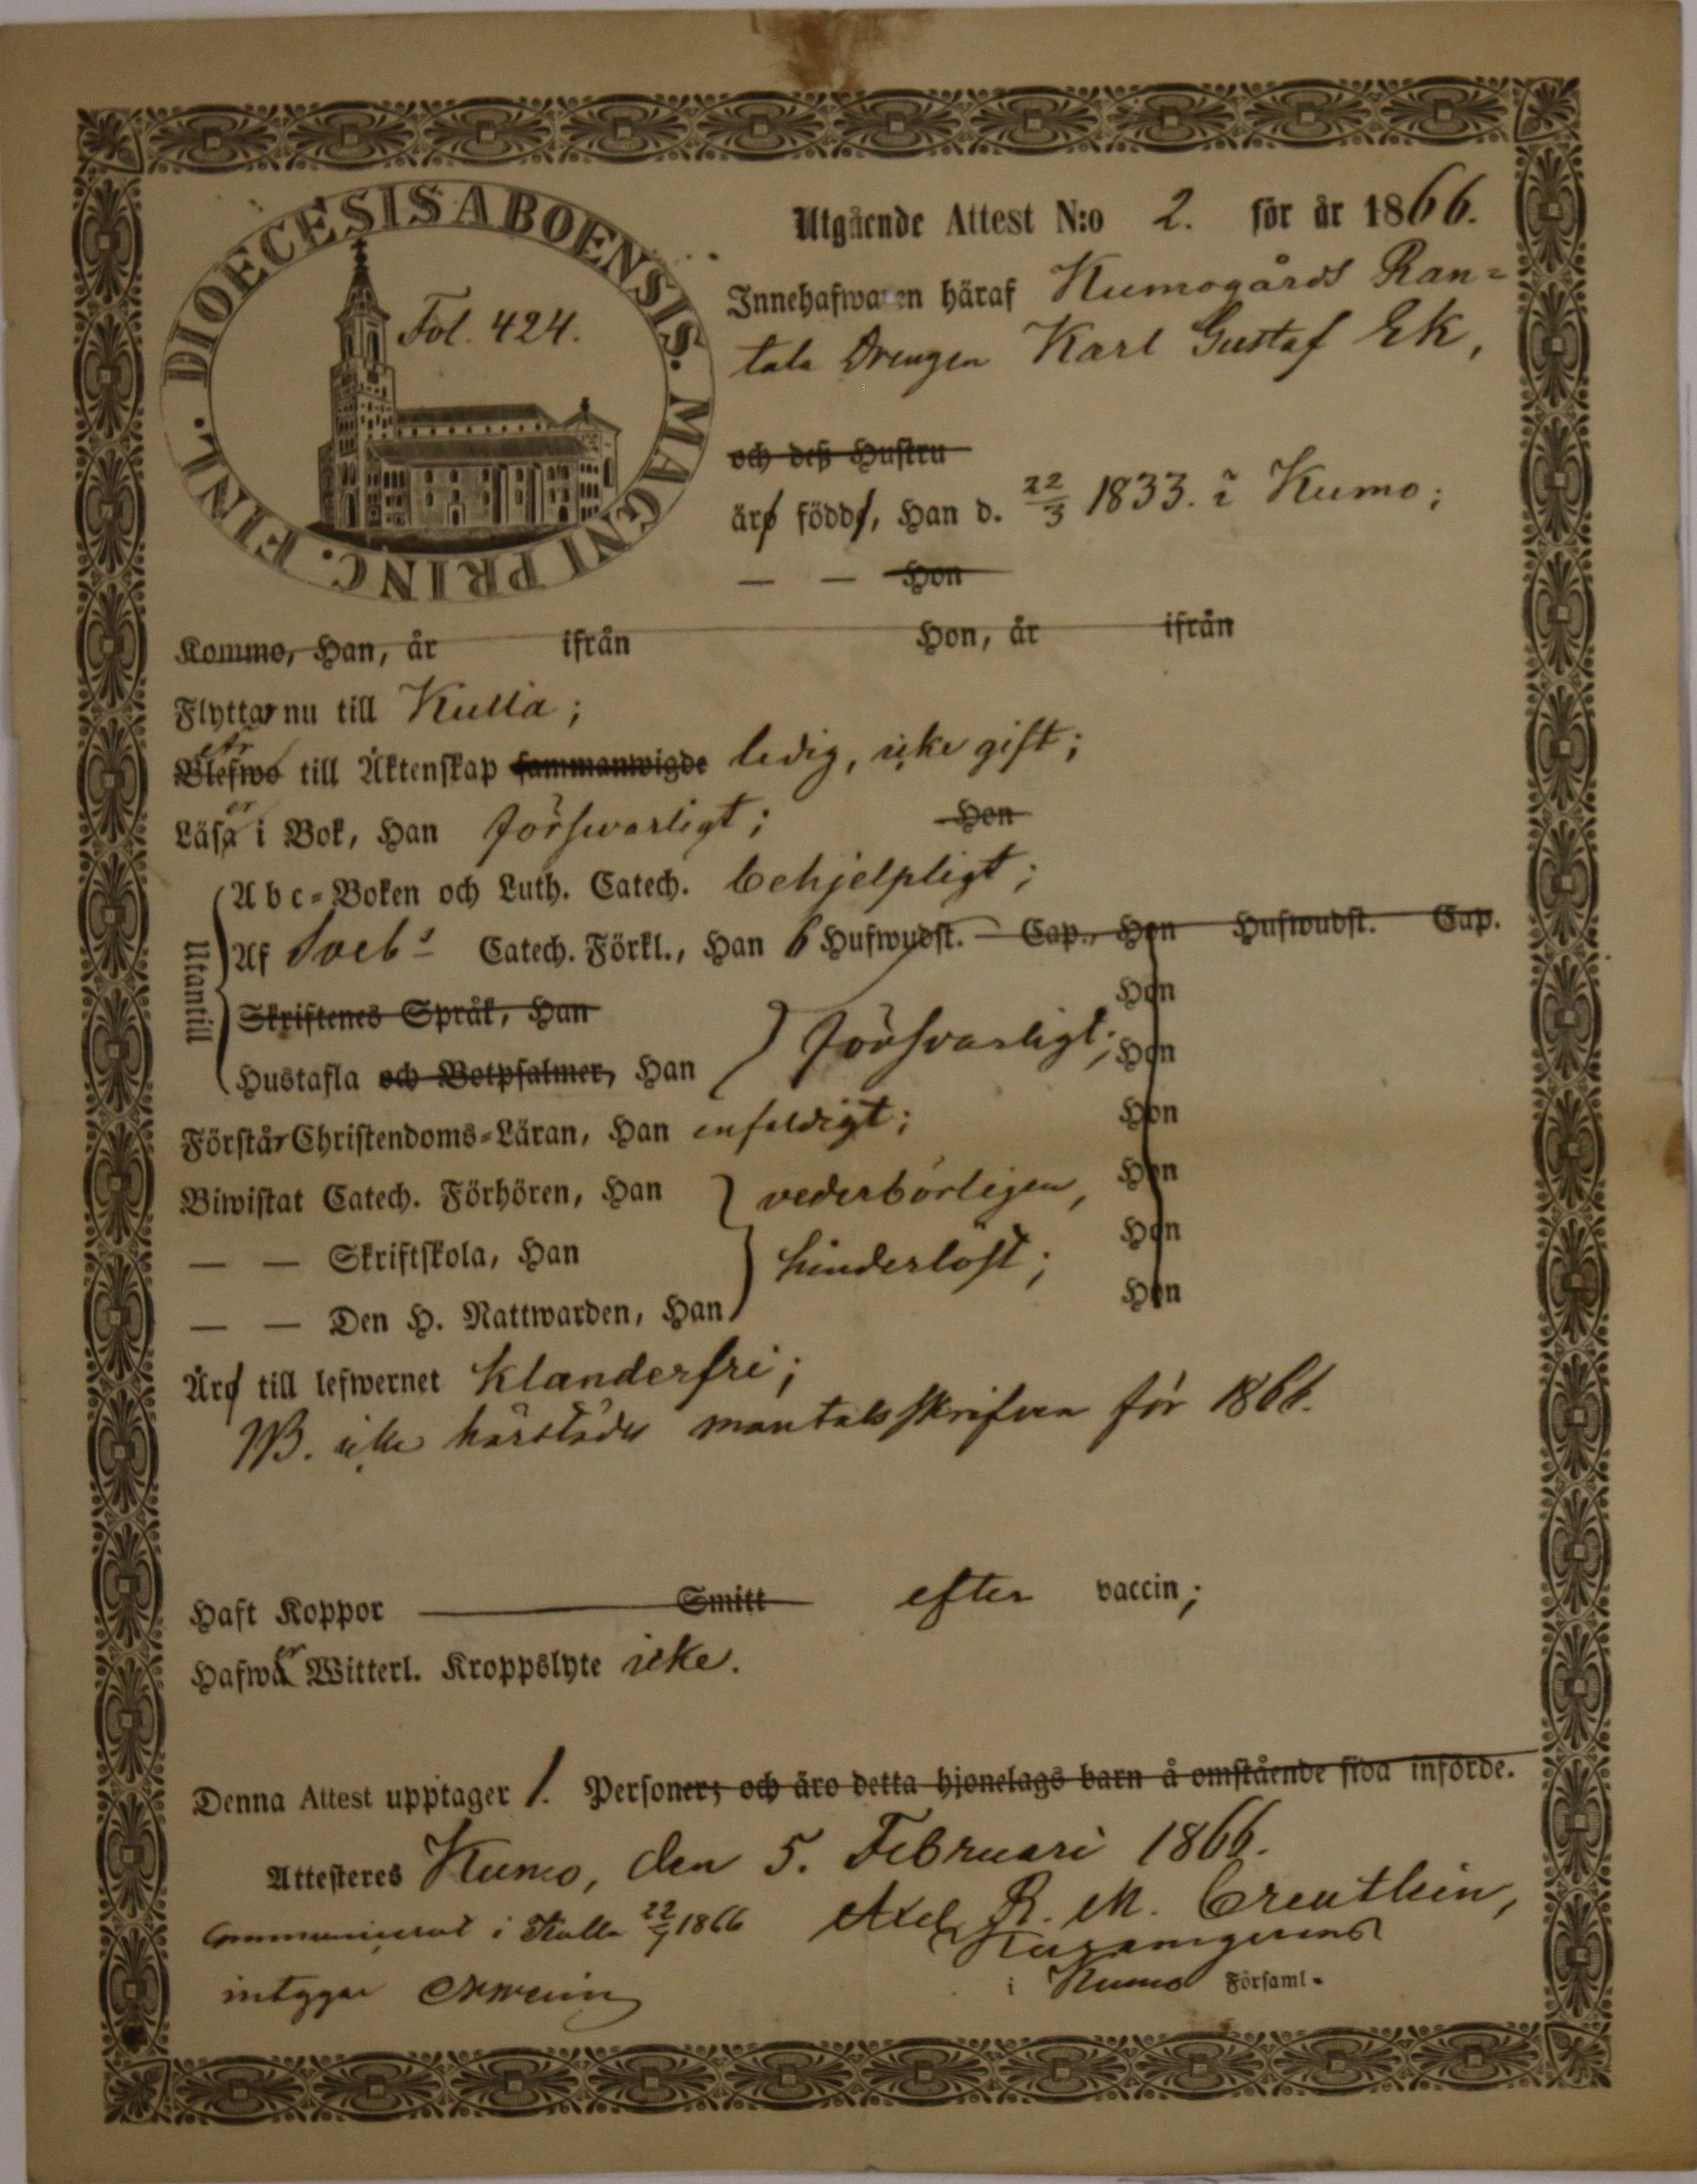 DIOECESIS ABOENSIS. MAGNI PRINC. FINL.
Fol. 424.
Utgående Attest N:o 2. för år 1866.
Innehafwaren häraf Kumogårds Ran=
tala Drengen Karl Gustaf Ek,
och deß Hustru
äro födde, Han d. 22/3 1833. i Kumo;
— — Hon
Kommo, Han, år ifrån Hon, år ifrån
Flyttar nu till Kulla;
är
Blefwo till Äktenskap sammanwigde ledig, icke gift;
er
Läsa i Bok, Han försvarligt; Hon
Utantill
Abc=Boken och Luth. Catech. behjelpligt;
Af Sveb:s Catech. Förkl., Han 6 Hufwudst. — Cap., Hon Hufwudst. Cap.
Skriftenes Språk, Han Hon
Hustafla och Botpsalmer, Han försvarligt; Hon
Förstår Christendoms=Läran, Han enfaldigt; Hon
Biwistat Catech. Förhören, Han vederbörligen, Hon
— — Skriftskola, Han hinderlöst; Hon
— — Den H. Nattwarden, Han Hon
Äro till lefwernet klanderfri;
NB. icke härstädes mantalsskrifven för 1866.
Haft Koppor Smitt efter vaccin;
er
Hafwa Witterl. Kroppslyte icke.
Denna Attest upptager 1. Personer; och äro detta hjonelags barn å omstående sida införde.
Attesteres Kumo, den 5. Februari 1866.
Axel R. M. Creutlein,
Communicerat i Kulla 22/7 1866
intygar
i Kumo Församl.